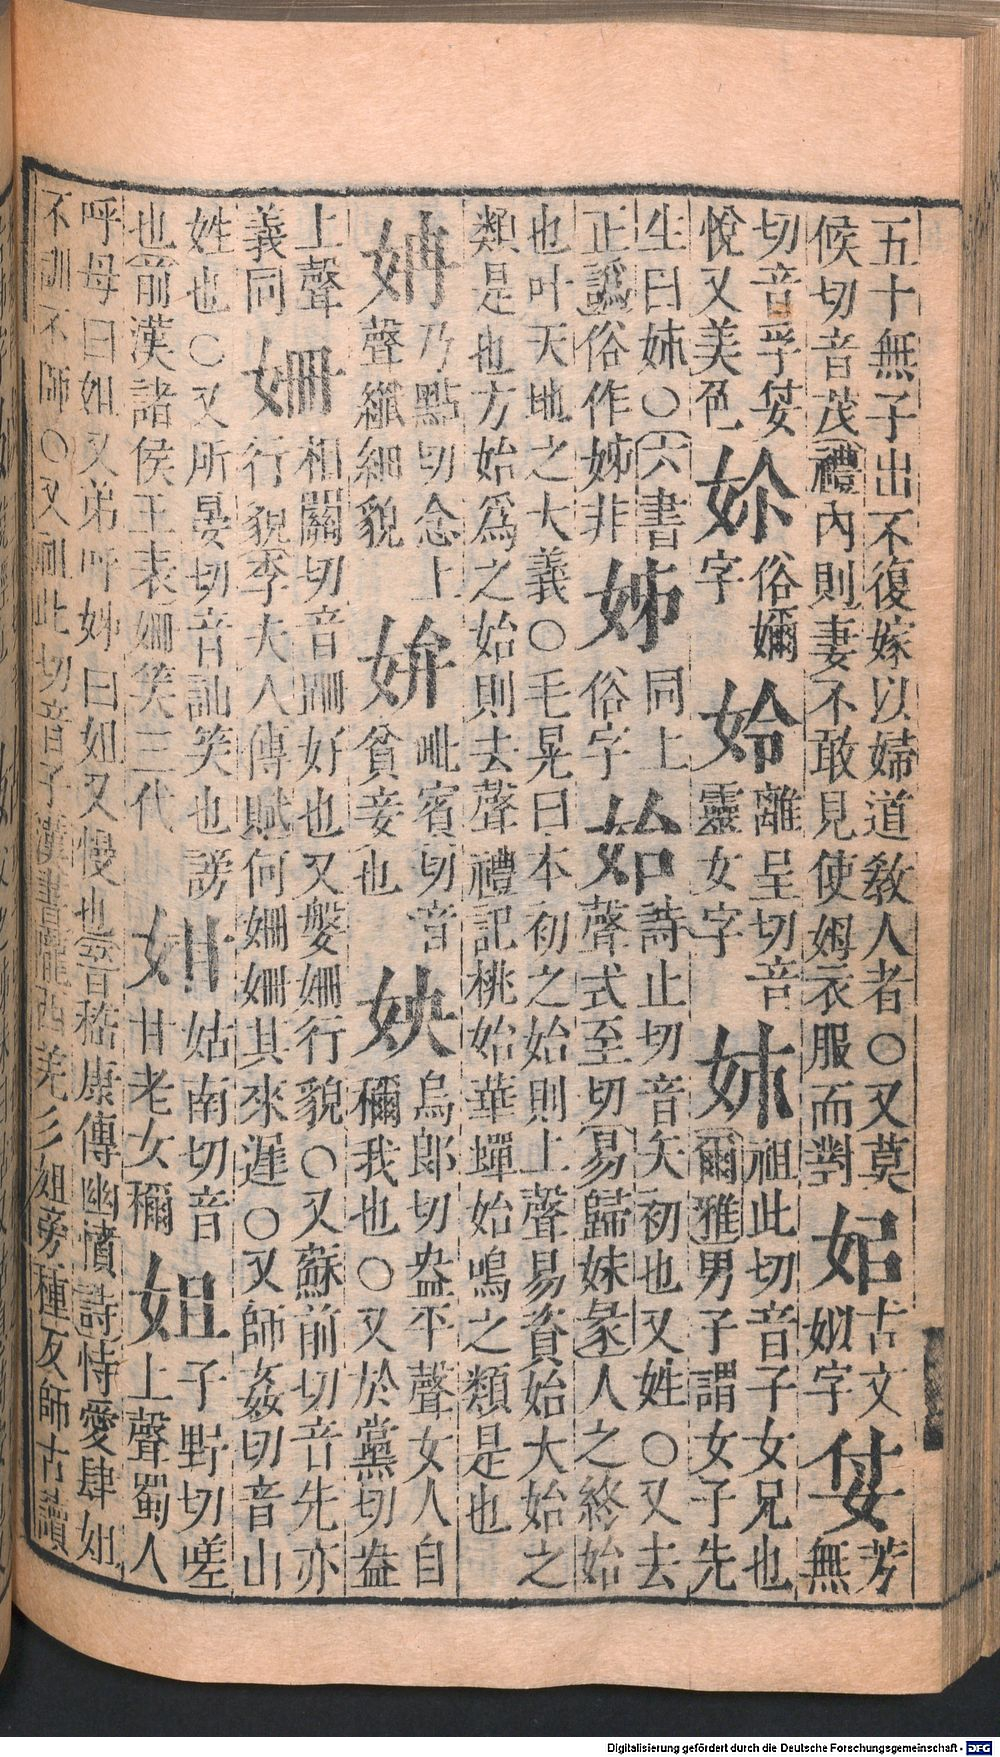 五十無子出不復嫁以婦道敎人者○又莫
候切音茂禮內則妻不敢見使姆衣服而對
古文
姒字
芳
無
切音孚
悅又美色
妳
俗嬭
字
姈
離呈切音
靈女字
姉
祖此切音子女兄也
爾雅男子謂女子先
生曰姉○六書
正譌俗作姊非
姊
同上
俗字
始
詩止切音矢初也又姓○又去
聲式至切易歸妹彖人之終始
也叶天地之大義○毛晃曰本初之始則上聲易資始大始之
類是也方始爲之始則去聲禮記桃始華蟬始鳴之類是也
姌
乃點切念上
聲纖細貌
姘
毗賓切音
貧妾也
姎
烏郎切盎平聲女人自
穪我也○又於黨切盎
上聲
義同
姍
相關切音跚好也又媻姍行貌○又蘇前切音先亦
行貌李夫人傳賦何姍姍其來遲○又師姦切音山
姓也○又所晏切音訕笑也謗
也前漢諸侯王表姍笑三代
姏
姑南切音
甘老女穪
姐
子野切嗟
上聲蜀人
呼母曰姐又弟呼姊曰姐又慢也晉嵇康傳幽憤詩恃愛肆姐
不訓不師○又祖此切音子漢書隴西羌彡姐旁種反師古讀
Digitalisierung gefördert durch die Deutsche Forschungsgemeinschaft - DFG